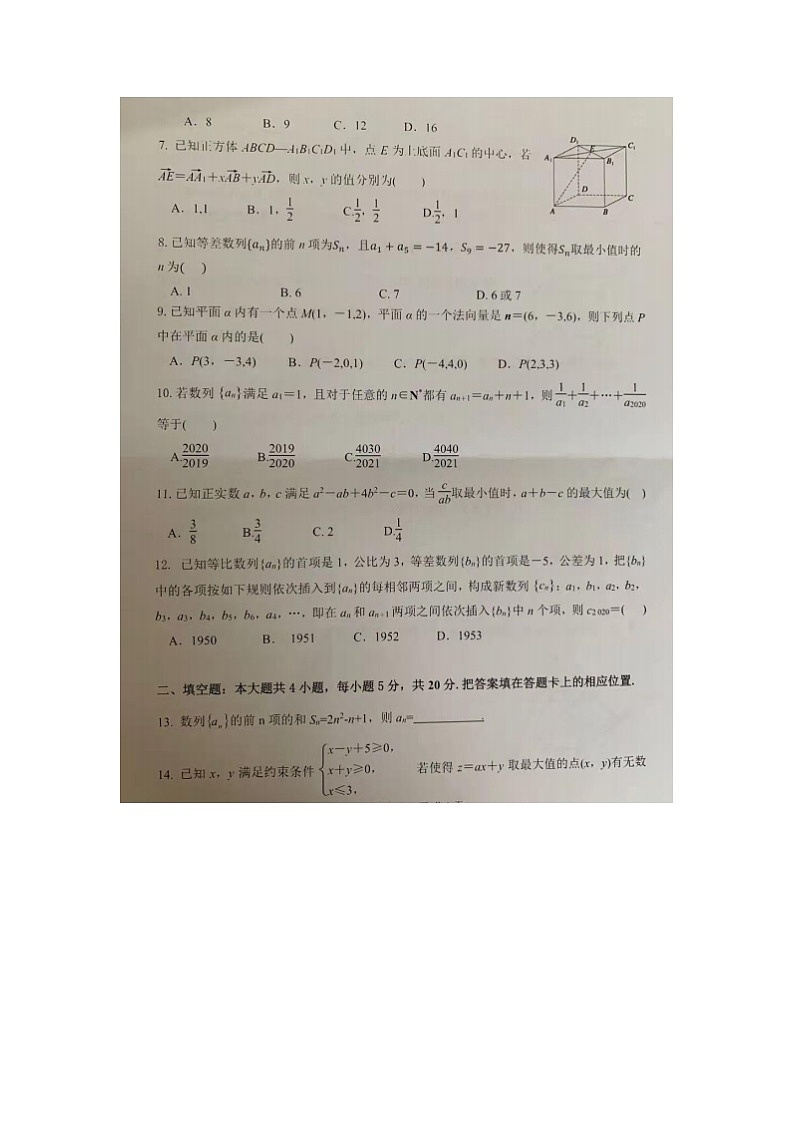 A．8 B．9 C．12 D．16
7. 已知正方体 ABCD—A₁B₁C₁D₁中，点 E 为上底面 A₁C₁的中心，若
AE=AA₁+xAB+yAD，则 x，y 的值分别为( )
A．1,1 B．1，1/2 C.1/2，1/2 D.1/2，1
D₁ C₁ E A₁ B₁ D C A B
8. 已知等差数列{aₙ}的前 n 项为Sₙ，且a₁ + a₅ = −14，S₉ = −27，则使得Sₙ取最小值时的
n 为( )
A. 1 B. 6 C. 7 D. 6 或 7
9. 已知平面 α 内有一个点 M(1，−1,2)，平面 α 的一个法向量是 n=(6，−3,6)，则下列点 P
中在平面 α 内的是( )
A．P(3，−3,4) B．P(−2,0,1) C．P(−4,4,0) D．P(2,3,3)
10. 若数列 {aₙ}满足 a₁=1，且对于任意的 n∈N*都有 aₙ₊₁=aₙ+n+1，则 1/a₁+1/a₂+…+1/a₂₀₂₀
等于( )
A.2020/2019 B.2019/2020 C.4030/2021 D.4040/2021
11. 已知正实数 a，b，c 满足 a²−ab+4b²−c=0，当 c/ab 取最小值时，a+b−c 的最大值为( )
A．3/8 B.3/4 C. 2 D.1/4
12. 已知等比数列{aₙ}的首项是 1，公比为 3，等差数列{bₙ}的首项是−5，公差为 1，把{bₙ}
中的各项按如下规则依次插入到{aₙ}的每相邻两项之间，构成新数列 {cₙ}：a₁，b₁，a₂，b₂，
b₃，a₃，b₄，b₅，b₆，a₄，…，即在 aₙ 和 aₙ₊₁ 两项之间依次插入{bₙ}中 n 个项，则 c₂₀₂₀=( )
A．1950 B．1951 C．1952 D．1953
二、填空题：本大题共 4 小题，每小题 5 分，共 20 分. 把答案填在答题卡上的相应位置.
13. 数列{aₙ}的前 n 项的和 Sₙ=2n²-n+1，则 aₙ=________.
x−y+5≥0，
14. 已知 x，y 满足约束条件 { x+y≥0， 若使得 z=ax+y 取最大值的点(x，y)有无数
x≤3，